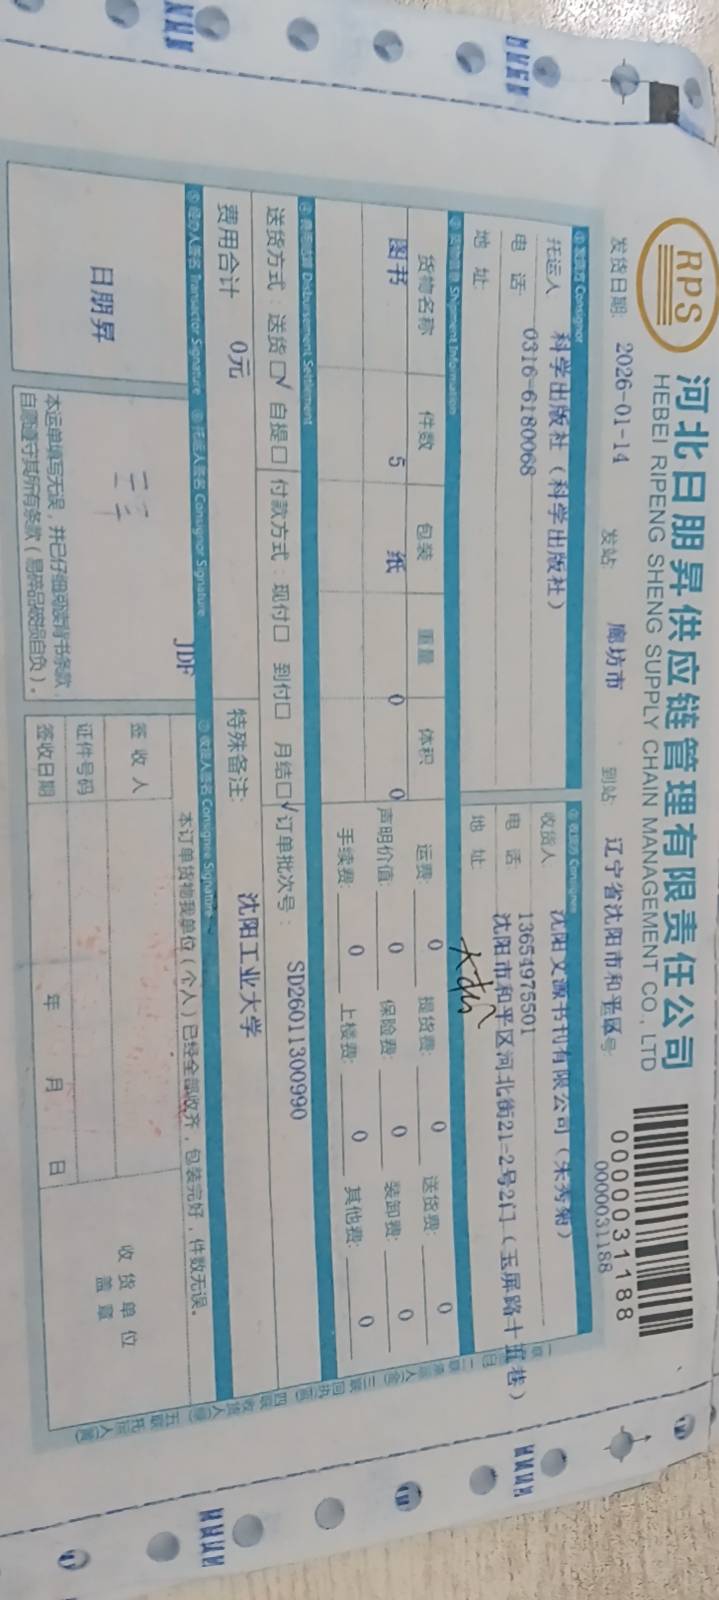 RPS
河北日朋昇供应链管理有限责任公司
HEBEI RIPENG SHENG SUPPLY CHAIN MANAGEMENT CO., LTD
0000031188
0000031188
发货日期: 2026-01-14 发站: 廊坊市 到站: 辽宁省沈阳市和平区 号:
①发货方 Consignor ②收货方 Consignee
托运人 科学出版社(科学出版社) 收货人 沈阳文源书刊有限公司(朱秀菊)
电 话: 0316-6180068 电 话: 13654975501
地 址: 地 址: 沈阳市和平区河北街21-2号2门(玉屏路十五巷)
③货物信息 Shipment Information
货物名称 件数 包装 重量 体积 运费: 0 提货费: 0 送货费: 0
图书 5 纸 0 0 声明价值: 0 保险费: 0 装卸费: 0
手续费: 0 上楼费: 0 其他费: 0
④费用结算 Disbursement Settlement
送货方式: 送货□√ 自提□ 付款方式: 现付□ 到付□ 月结□√ 订单批次号: SD26011300990
费用合计 0元 特殊备注: 沈阳工业大学
⑤经办人签名 Transactor Signature ⑥托运人签名 Consignor Signature ⑦收货人签名 Consignee Signature
JDF
日朋昇
本订单货物我单位(个人)已经全部收齐,包装完好,件数无误。
签 收 人
证件号码
签收日期 年 月 日
收货单位
盖 章
本运单填写无误,并已仔细阅读背书条款,
自愿遵守其所有条款(易碎品破损自负)。